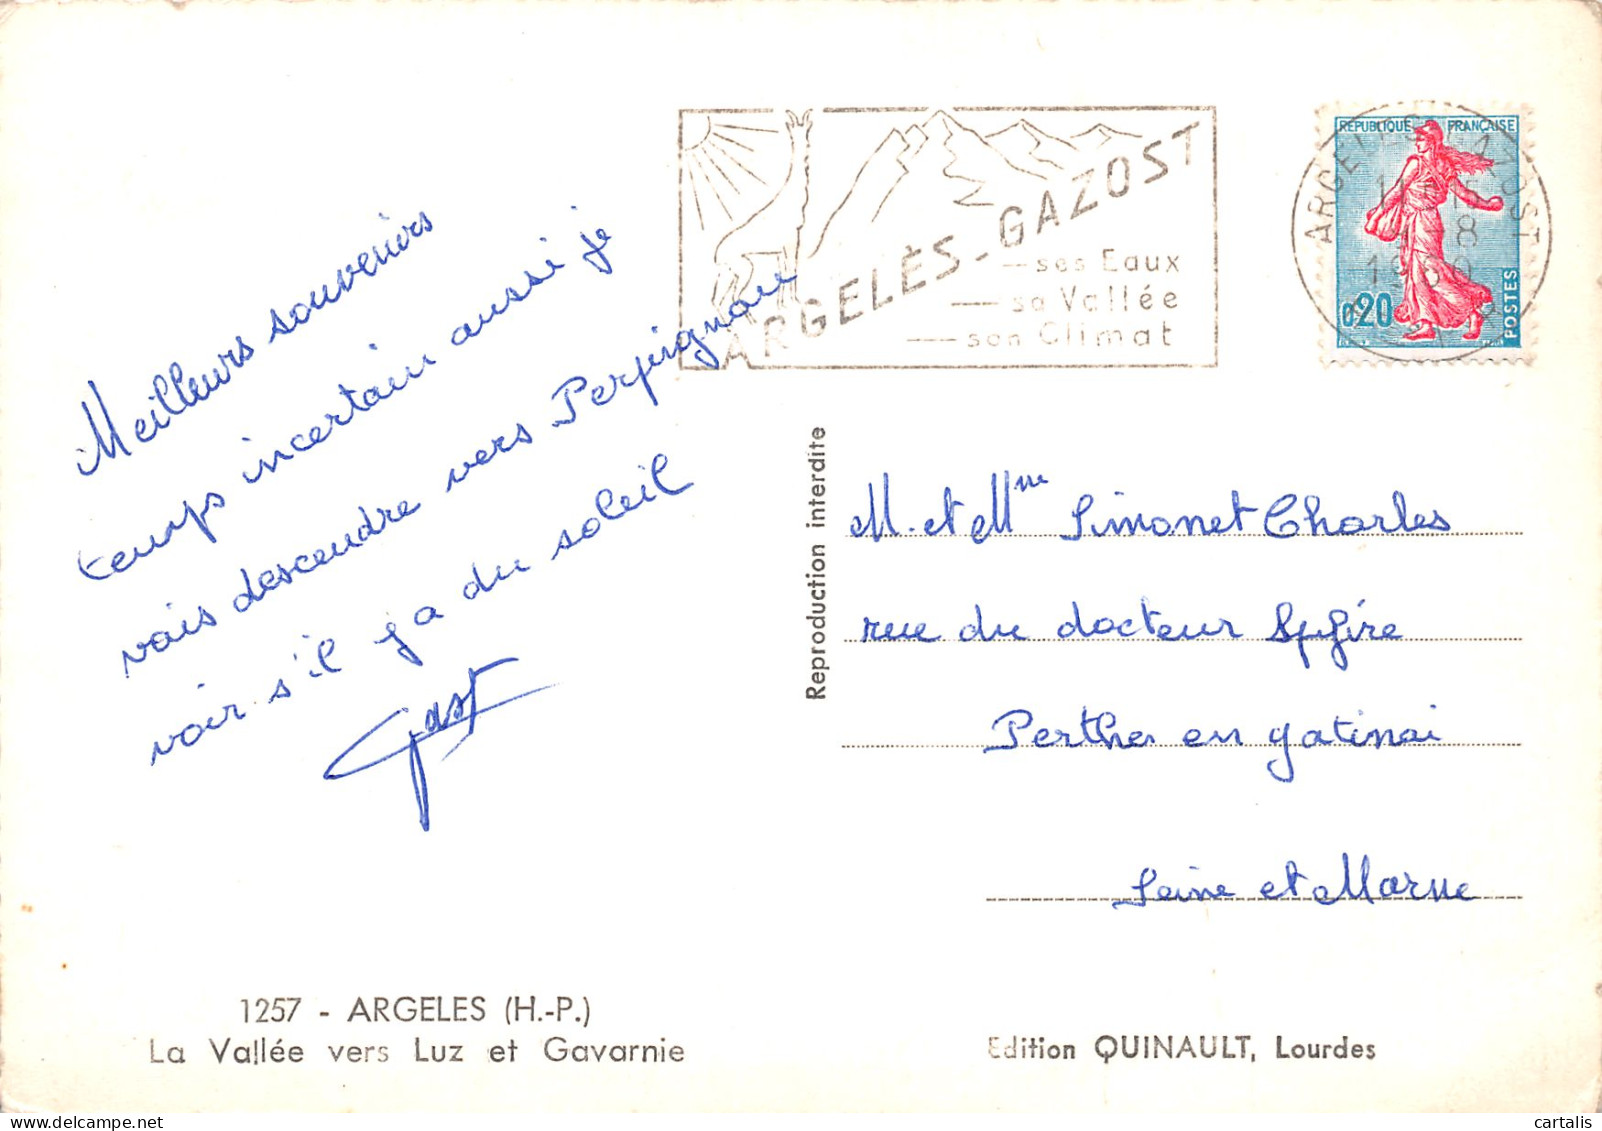 Meilleurs souvenirs
temps incertain aussi je
vais descendre vers Perpignan
voir s'il y a du soleil
Gast
1257 - ARGELES (H.-P.)
La Vallée vers Luz et Gavarnie
ARGELÈS-GAZOST
ses Eaux
sa Vallée
son Climat
REPUBLIQUE FRANÇAISE
0,20
POSTES
ARGELES GAZOST
8
1960
Reproduction interdite
M. et Mme Simonet Charles
rue du docteur
Perthes en gatinai
Seine et Marne
Edition QUINAULT, Lourdes
cartalis for delcampe.net